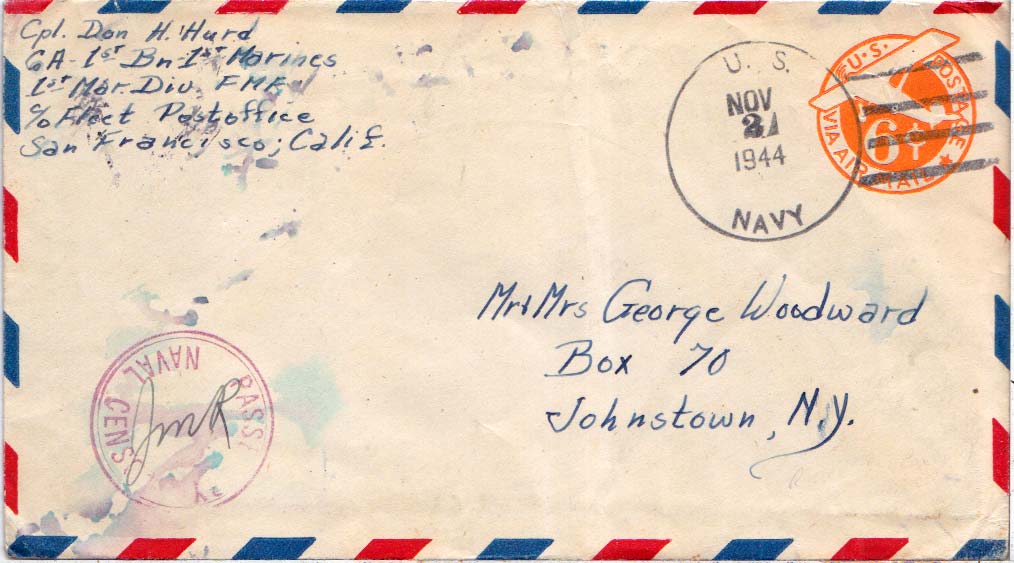 Cpl. Don H. Hurd
CA-1st Bn-1st Marines
1st Mar. Div. FMF
c/o Fleet Postoffice
San Francisco, Calif.
U. S.
NOV
1944
NAVY
U.S. POSTAGE
6¢
VIA AIR MAIL
Mr & Mrs George Woodward
Box 70
Johnstown, N.Y.
PASS
BY
NAVAL
CENS